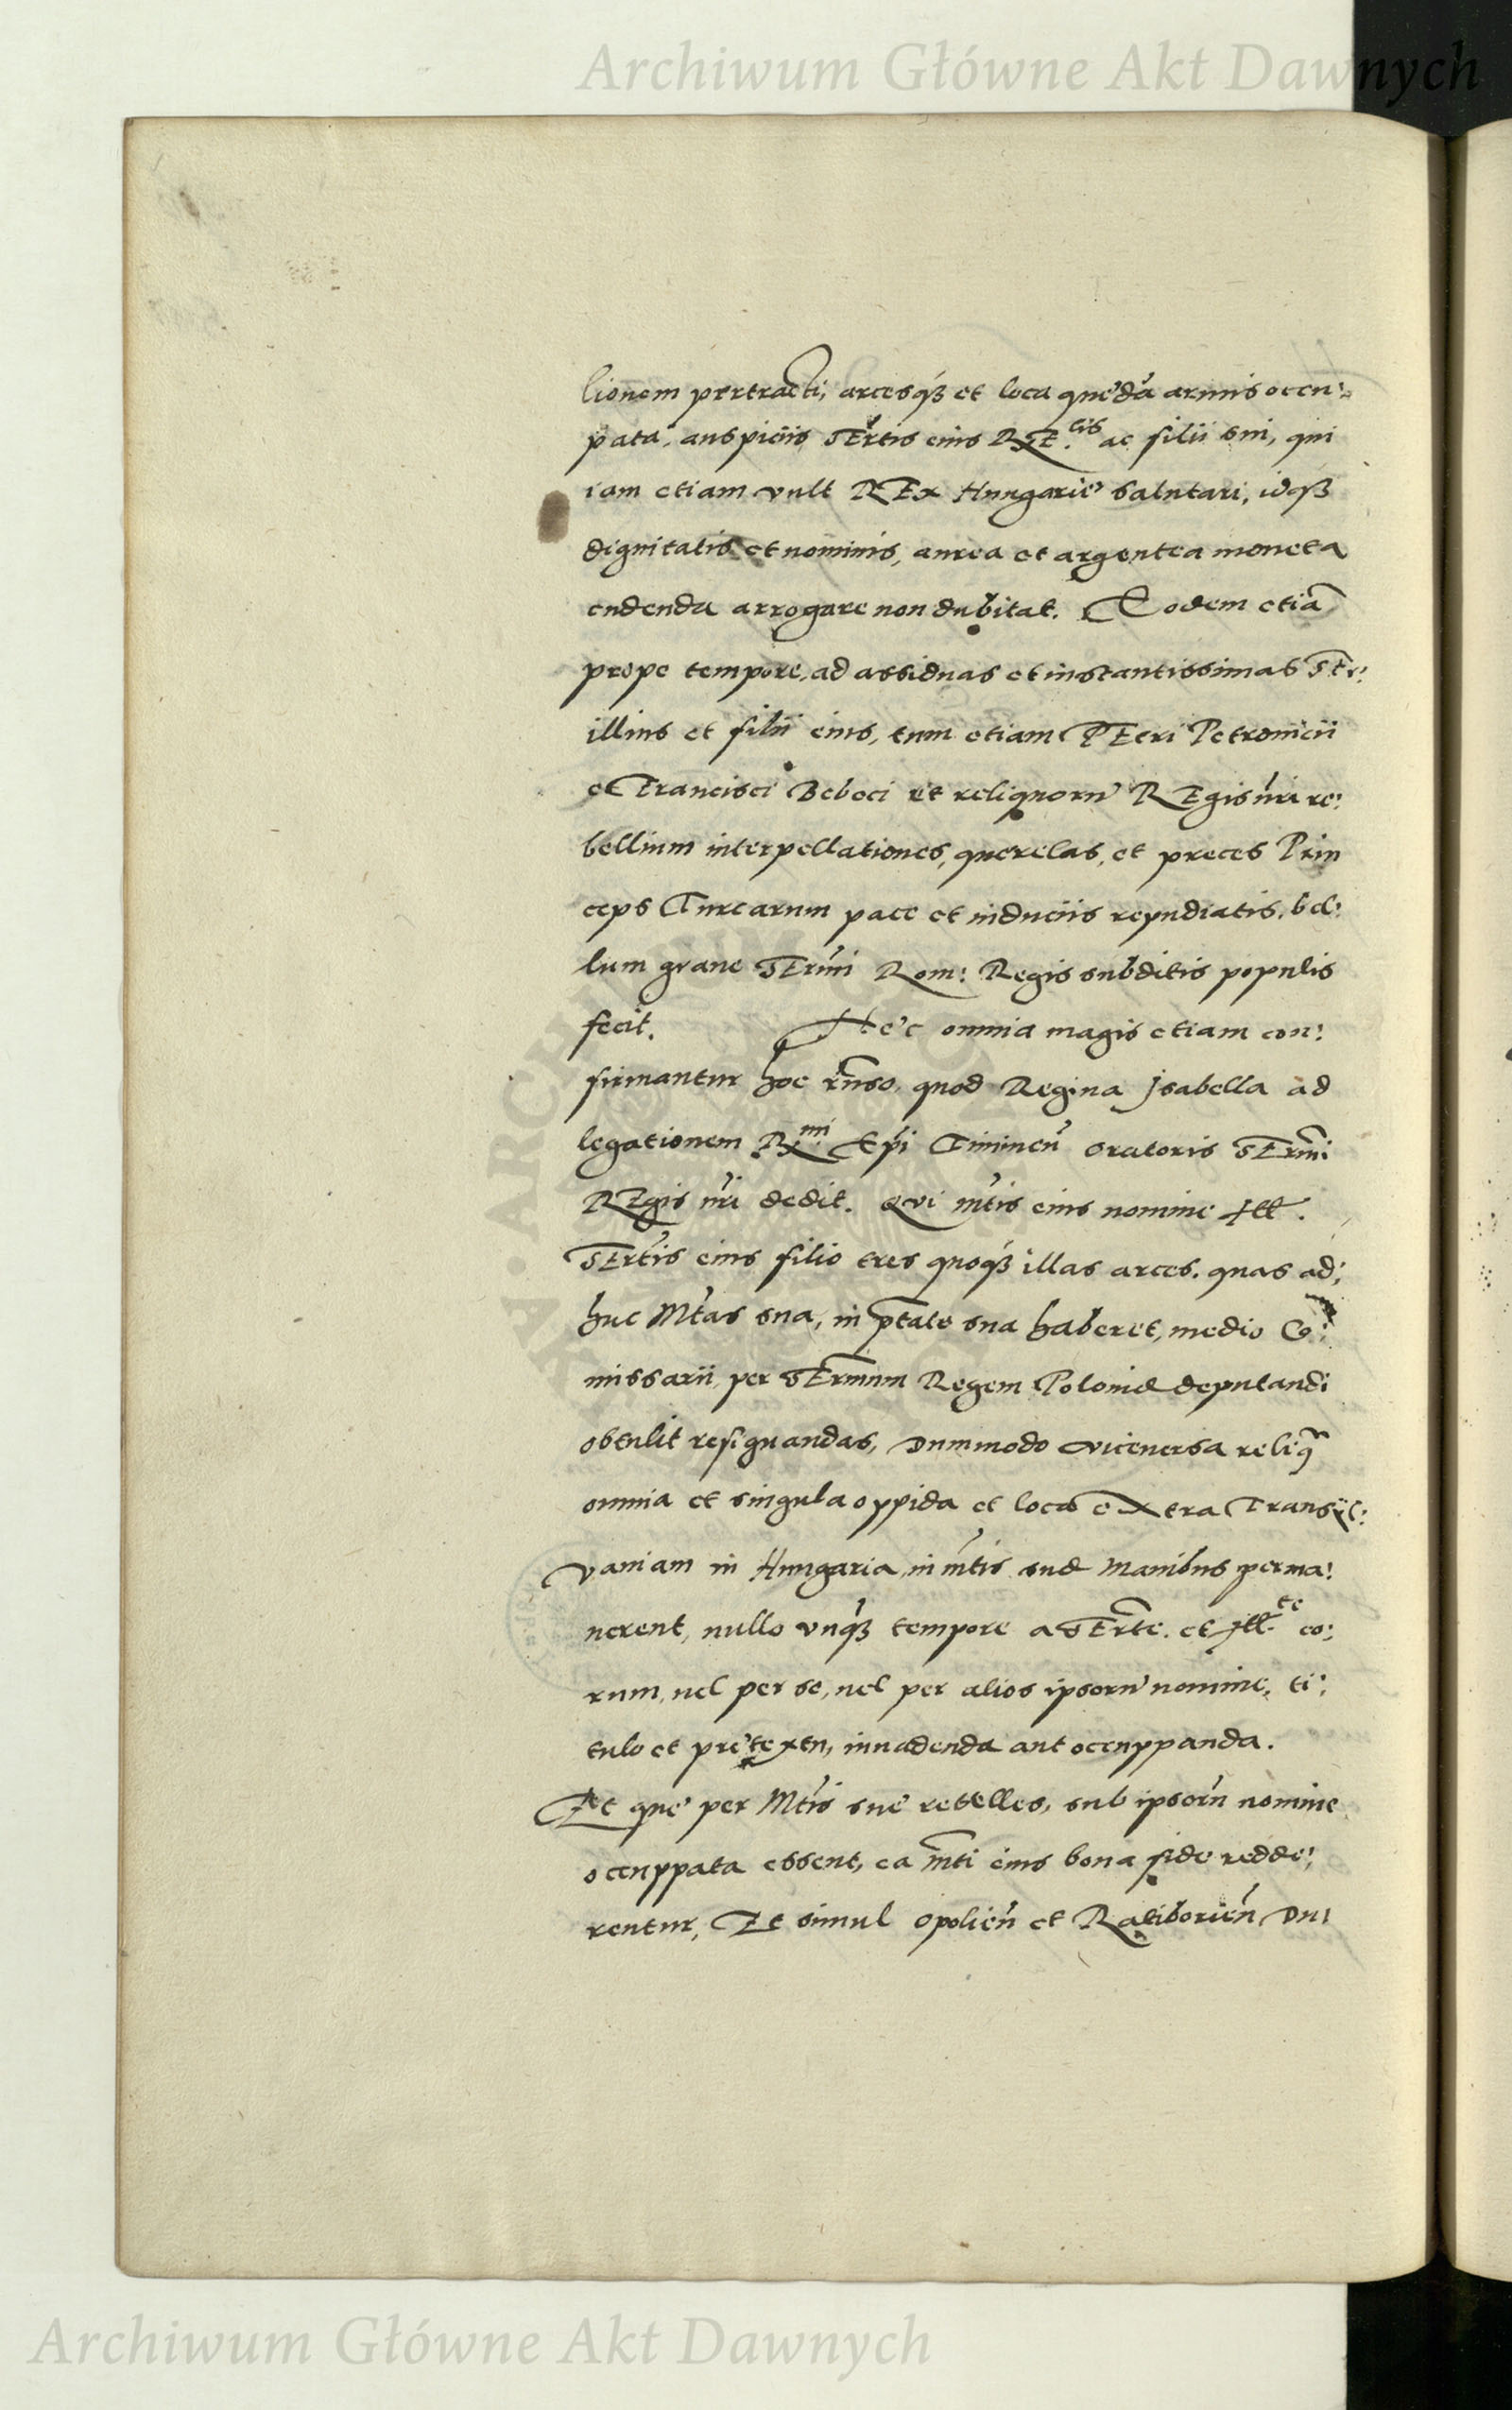 Archiwum Główne Akt Dawnych
lionem pertracti, arcesqȝ et loca quędā armis occu:
pata, auspiciis SErtis eius RGE.tis ac filii sui, qui
iam etiam vult REx Hungarię salutari, idqȝ
dignitatis et nominis, aurea et argentea moneta
cudenda arrogare non dubitat. Eodem etiā
prope tempore, ad assiduas et instantissimas SEr:
illius et filii eius, tum etiam PEtri Petrouicii
et Francisci Bebeci et reliquorū REgis nri re:
bellium interpellationes, querelas, et preces Prin
ceps Turcarum pace et induciis repudiatis, bel:
lum graue SErmi Rom: Regis subditis populis
fecit. Hęc omnia magis etiam con:
firmantur hoc rñso, quod Regina Jsabella ad
legationem Rmi Epi Timineñ Oratoris SErmi
REgis nri dedit. Qui mtis eius nomine Ill.
SErtis eius filio tres quoqȝ illas arces, quas ad:
huc Mtas sua, in ptate sua haberet, medio Co:
missarii per SErmum Regem Poloniæ deputandi
obtulit resignandas, Dummodo viceuersa reliq̄
omnia et singula oppida et loca extra Transyl:
vaniam in Hungaria, in mtis suæ manibus perma:
nerent, nullo vnqȝ tempore a SErte. et Ill.te eo:
rum, uel per se, uel per alios ipsorū nomine, ti:
tulo et prętextu, inuadenda aut occuppanda.
Et quę per Mtis suę rebelles, sub ipsorū nomine
occuppata essent, ea mti eius bona fide redde:
rentur, Et simul Opolieñ et Ratiborieñ Du:
Archiwum Główne Akt Dawnych